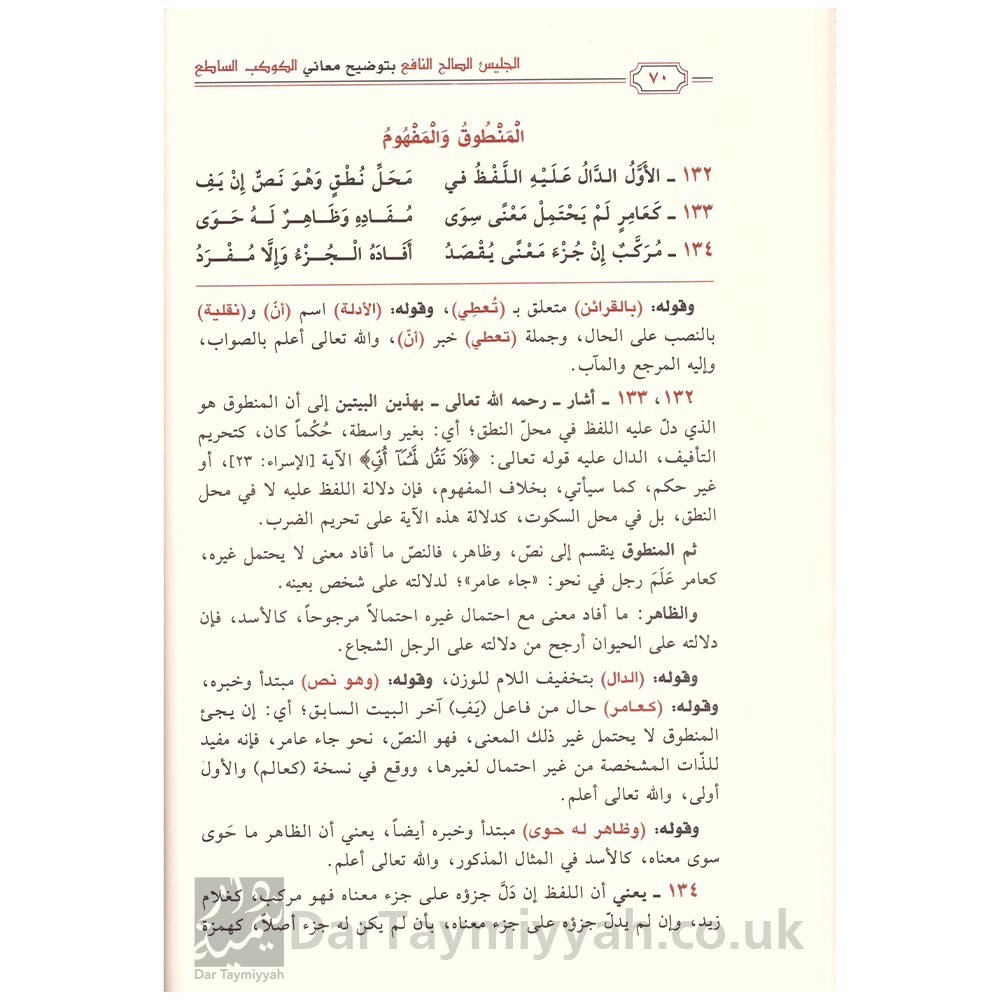 الجليس الصالح النافع بتوضيح معاني الكوكب الساطع
٧٠
الْمَنْطُوقُ وَالْمَفْهُومُ
١٣٢ ـ الأَوَّلُ الدَّالُ عَلَيْهِ اللَّفْظُ في مَحَلِّ نُطْقٍ وَهْوَ نَصٌّ إِنْ يَفِ
١٣٣ ـ كَعَامِرٍ لَمْ يَحْتَمِلْ مَعْنًى سِوَى مُفَادِهِ وَظَاهِرٌ لَهُ حَوَى
١٣٤ ـ مُرَكَّبٌ إِنْ جُزْءَ مَعْنًى يُقْصَدُ أَفَادَهُ الْجُزْءُ وَإِلَّا مُفْرَدُ
وقوله: (بالقرائن) متعلق بـ (تُعطِي)، وقوله: (الأدلة) اسم (أنّ) و(نقلية)
بالنصب على الحال، وجملة (تعطي) خبر (أنّ)، والله تعالى أعلم بالصواب،
وإليه المرجع والمآب.
١٣٢، ١٣٣ ـ أشار ـ رحمه الله تعالى ـ بهذين البيتين إلى أن المنطوق هو
الذي دلّ عليه اللفظ في محلّ النطق؛ أي: بغير واسطة، حُكْماً كان، كتحريم
التأفيف، الدال عليه قوله تعالى: ﴿فَلَا تَقُل لَّهُمَآ أُفٍّ﴾ الآية [الإسراء: ٢٣]، أو
غير حكم، كما سيأتي، بخلاف المفهوم، فإن دلالة اللفظ عليه لا في محل
النطق، بل في محل السكوت، كدلالة هذه الآية على تحريم الضرب.
ثم المنطوق ينقسم إلى نصّ، وظاهر، فالنصّ ما أفاد معنى لا يحتمل غيره،
كعامر عَلَمَ رجل في نحو: «جاء عامر»؛ لدلالته على شخص بعينه.
والظاهر: ما أفاد معنى مع احتمال غيره احتمالاً مرجوحاً، كالأسد، فإن
دلالته على الحيوان أرجح من دلالته على الرجل الشجاع.
وقوله: (الدال) بتخفيف اللام للوزن، وقوله: (وهو نص) مبتدأ وخبره،
وقوله: (كعامر) حال من فاعل (يَفِ) آخر البيت السابق؛ أي: إن يجئ
المنطوق لا يحتمل غير ذلك المعنى، فهو النصّ، نحو جاء عامر، فإنه مفيد
للذّات المشخصة من غير احتمال لغيرها، ووقع في نسخة (كعالم) والأول
أولى، والله تعالى أعلم.
وقوله: (وظاهر له حوى) مبتدأ وخبره أيضاً، يعني أن الظاهر ما حَوى
سوى معناه، كالأسد في المثال المذكور، والله تعالى أعلم.
١٣٤ ـ يعني أن اللفظ إن دَلَّ جزؤه على جزء معناه فهو مركب، كغلام
زيد، وإن لم يدلّ جزؤه على جزء معناه، بأن لم يكن له جزء أصلاً، كهمزة
DarTaymiyyah.co.uk
Dar Taymiyyah